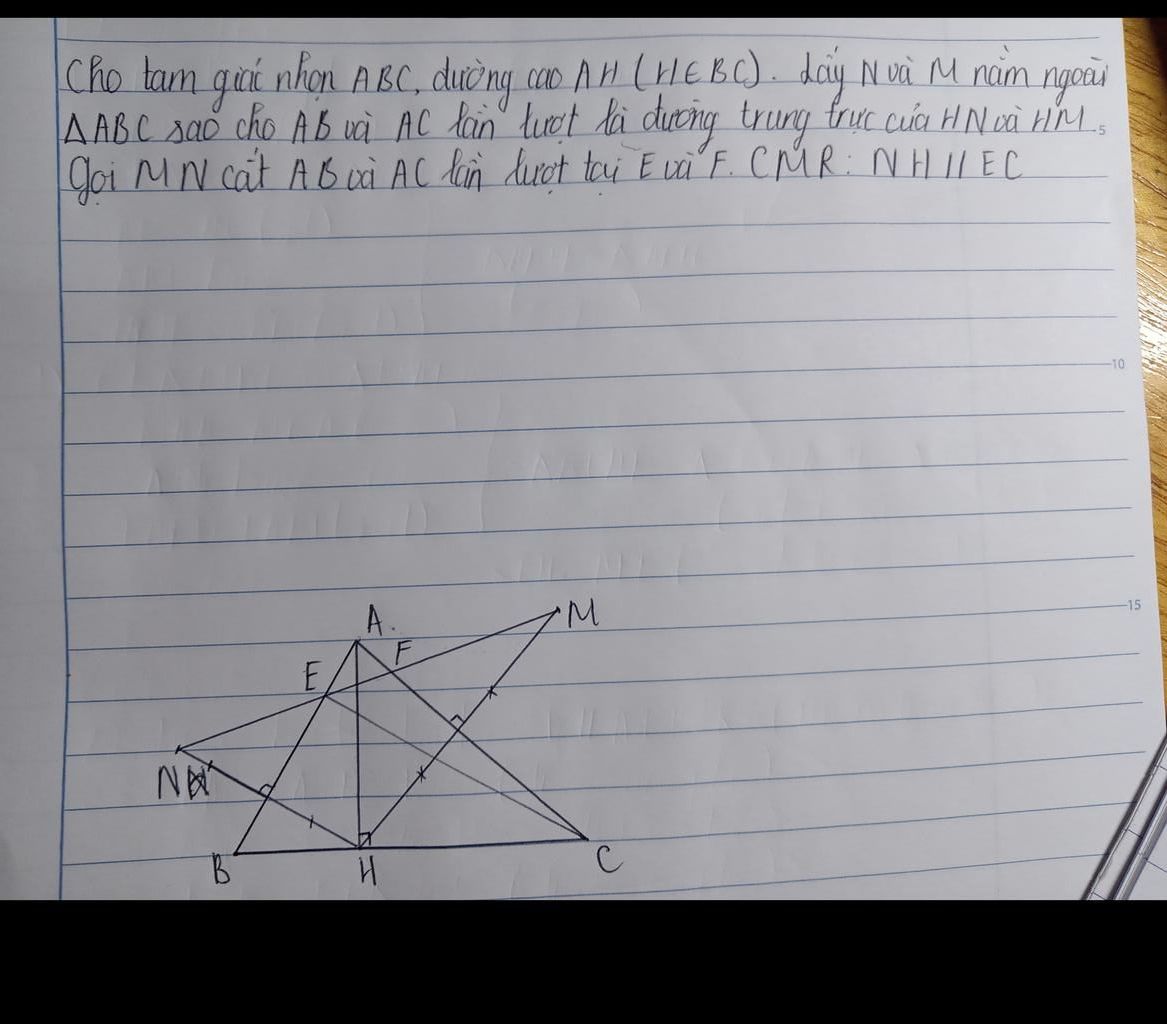 Cho tam giác nhọn ABC, đường cao AH (H∈BC). Lấy N và M nằm ngoài
∆ABC sao cho AB và AC lần lượt là đường trung trực của HN và HM.
5
Gọi MN cắt AB và AC lần lượt tại E và F. CMR: NH // EC
10
15
A.
M
F
E
N
B
H
C